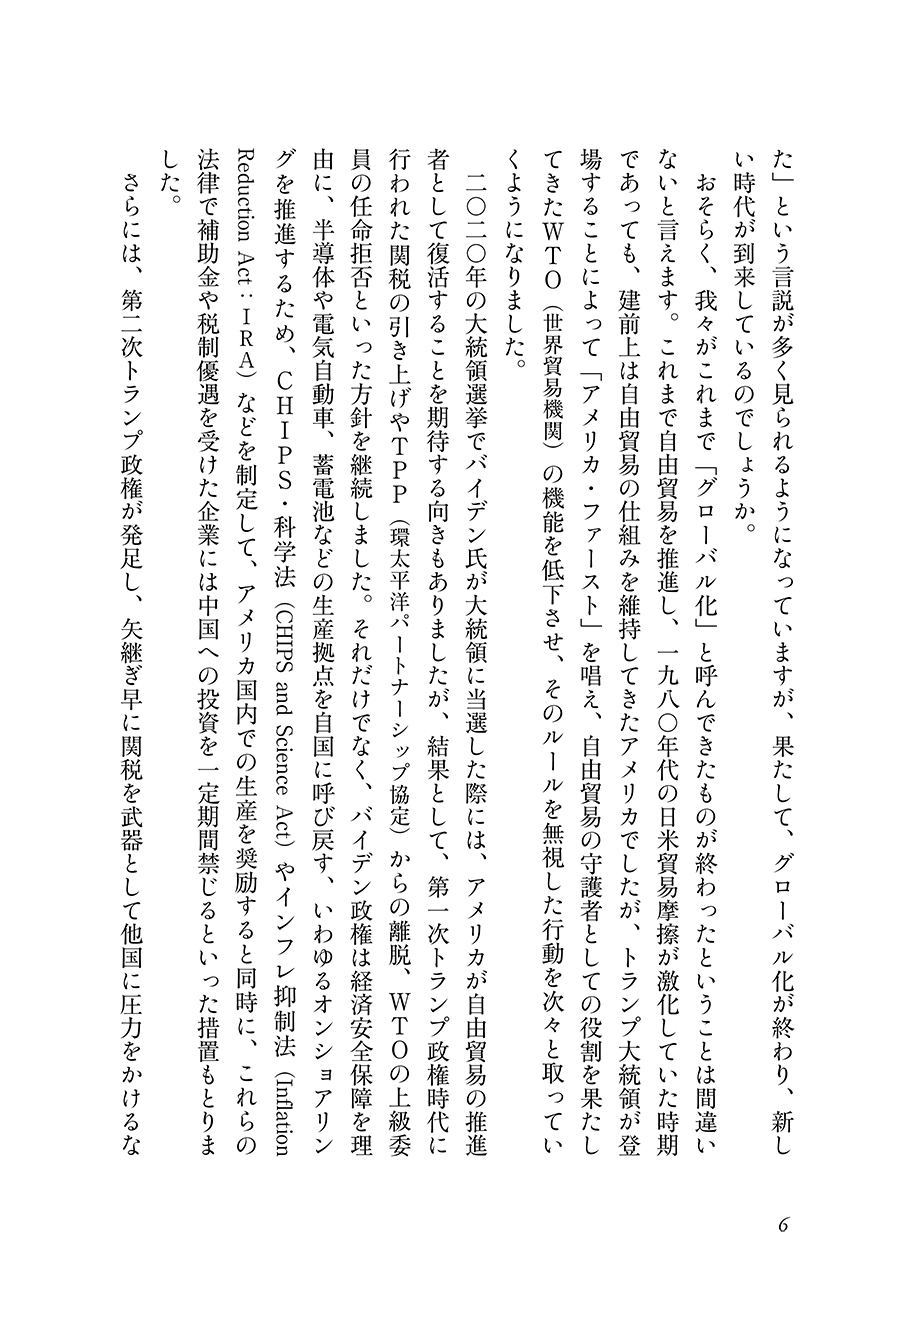 た」という言説が多く見られるようになっていますが、果たして、グローバル化が終わり、新し
い時代が到来しているのでしょうか。
おそらく、我々がこれまで「グローバル化」と呼んできたものが終わったということは間違い
ないと言えます。これまで自由貿易を推進し、一九八〇年代の日米貿易摩擦が激化していた時期
であっても、建前上は自由貿易の仕組みを維持してきたアメリカでしたが、トランプ大統領が登
場することによって「アメリカ・ファースト」を唱え、自由貿易の守護者としての役割を果たし
てきたWTO（世界貿易機関）の機能を低下させ、そのルールを無視した行動を次々と取ってい
くようになりました。
二〇二〇年の大統領選挙でバイデン氏が大統領に当選した際には、アメリカが自由貿易の推進
者として復活することを期待する向きもありましたが、結果として、第一次トランプ政権時代に
行われた関税の引き上げやTPP（環太平洋パートナーシップ協定）からの離脱、WTOの上級委
員の任命拒否といった方針を継続しました。それだけでなく、バイデン政権は経済安全保障を理
由に、半導体や電気自動車、蓄電池などの生産拠点を自国に呼び戻す、いわゆるオンショアリン
グを推進するため、CHIPS・科学法（CHIPS and Science Act）やインフレ抑制法（Inflation
Reduction Act：IRA）などを制定して、アメリカ国内での生産を奨励すると同時に、これらの
法律で補助金や税制優遇を受けた企業には中国への投資を一定期間禁じるといった措置もとりま
した。
さらには、第二次トランプ政権が発足し、矢継ぎ早に関税を武器として他国に圧力をかけるな
6